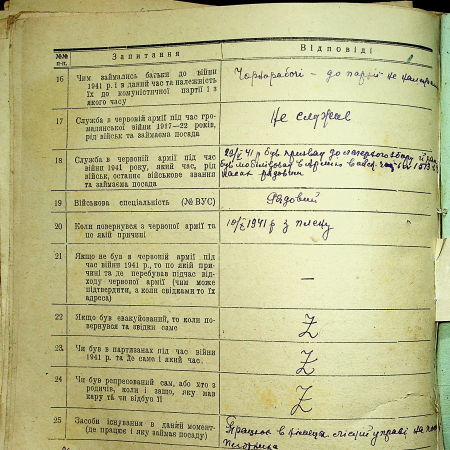 №№ п-п.
Запитання
Відповіді
16
Чим займались батьки до війни
1941 р. і в даний час та належність
їх до комуністичної партії і з
якого часу
Чорнорабочі — до партії не належали
17
Служба в червоній армії під час гро-
мадянської війни 1917—22 років,
рід військ та займаєма посада
Не служив
18
Служба в червоній армії під час
війни 1941 року, який час, рід
військ, останнє військове звання
та займаєма посада
був призван до
був мобілізован в армію
рядовим
19
Військова спеціальність (№ ВУС)
Рядовий
20
Коли повернувся з червоної армії та
по якій причині
1941 р з плену
21
Якщо не був в червоній армії під
час війни 1941 р., то по якій при-
чині та де перебував підчас від-
ходу червоної армії (чим може
підтвердити, а коли свідками то їх
адреса)
—
22
Якщо був евакуйований, то коли по-
вернувся та звідки саме
Z
23
Чи був в партизанах під час війни
1941 р. та де саме і який час
Z
24
Чи був репресований сам, або хто з
родичів, коли і защо, яку мав
кару та чи відбув її
Z
25
Засоби існування в даний момент-
(де працює і яку займає посаду)
Працюю в управі на